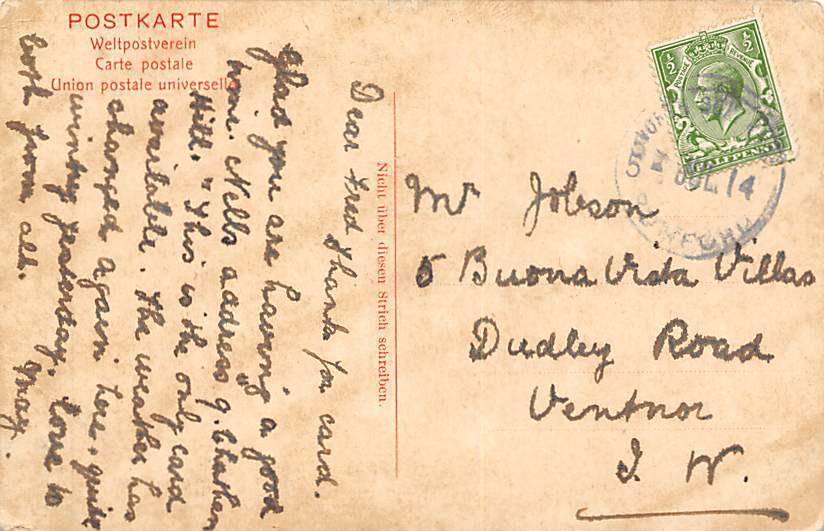 POSTKARTE
Weltpostverein
Carte postale
Union postale universelle
Dear Fred Thanks for card.
Glad you are having a good
time. Nells address 9. Chatham
Hill. "This is the only card
available. The weather has
changed again here, quite
wintry yesterday, Love to
both from all.
May.
Nicht über diesen Strich schreiben.
½ ½
POSTAGE REVENUE
HALFPENNY
JUL 14
Mr Jobson
5 Buona Vista Villas
Dudley Road
Ventnor
I. W.